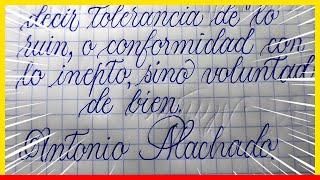 decir tolerancia de "lo
ruin, o conformidad con
lo inepto, sino voluntad
de bien.
Antonio Machado